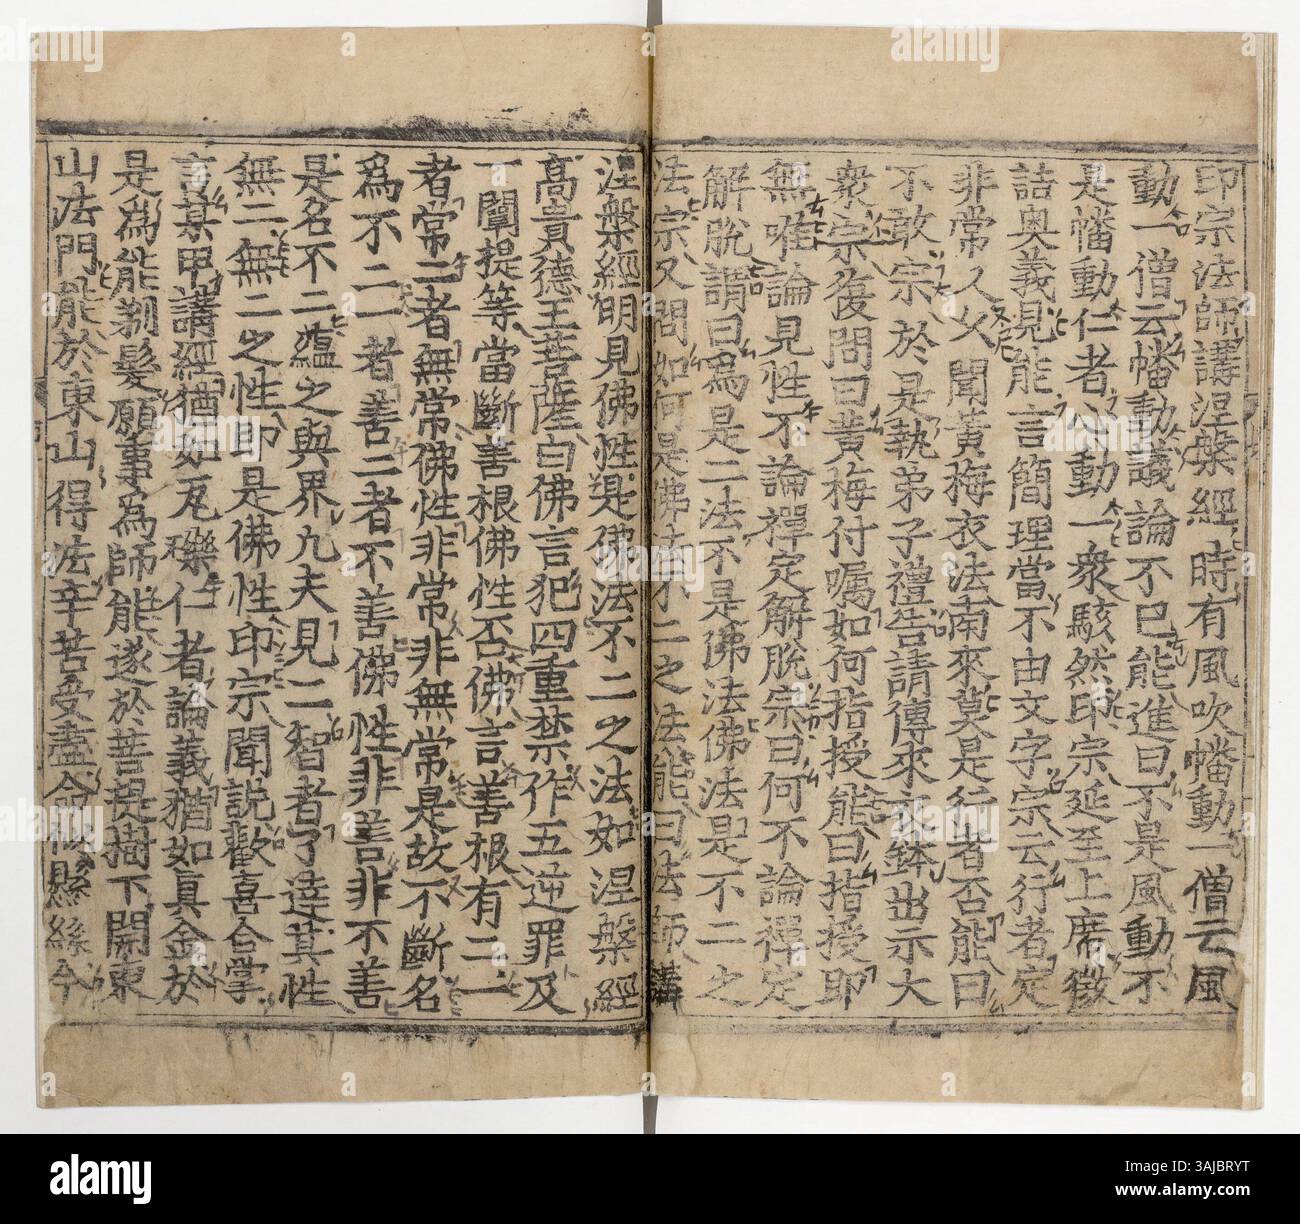 印宗法師講涅槃經時有風吹幡動一僧云風
動一僧云幡動議論不已能進曰不是風動不
是幡動仁者心動一衆駭然印宗延至上席徵
詰奧義見能言簡理當不由文字宗云行者定
非常人久聞黃梅衣法南來莫是行者否能曰
不敢宗於是執弟子禮告請傳來衣鉢出示大
衆宗復問曰黃梅付囑如何指授能曰指授即
無唯論見性不論禪定解脫宗曰何不論禪定
解脫謂曰爲是二法不是佛法佛法是不二之
法宗又問如何是佛法不二之法能曰法師講
涅槃經明見佛性是佛法不二之法如涅槃經
高貴德王菩薩白佛言犯四重禁作五逆罪及
一闡提等當斷善根佛性否佛言善根有二一
者常二者無常佛性非常非無常是故不斷名
爲不二一者善二者不善佛性非善非不善
是名不二蘊之與界凡夫見二智者了達其性
無二無二之性即是佛性印宗聞說歡喜合掌
言某甲講經猶如瓦礫仁者論義猶如真金於
是爲能剃髮願事爲師能遂於菩提樹下開東
山法門能於東山得法辛苦受盡命似懸絲今
a alamy
www.alamy.com
3AJBRYT